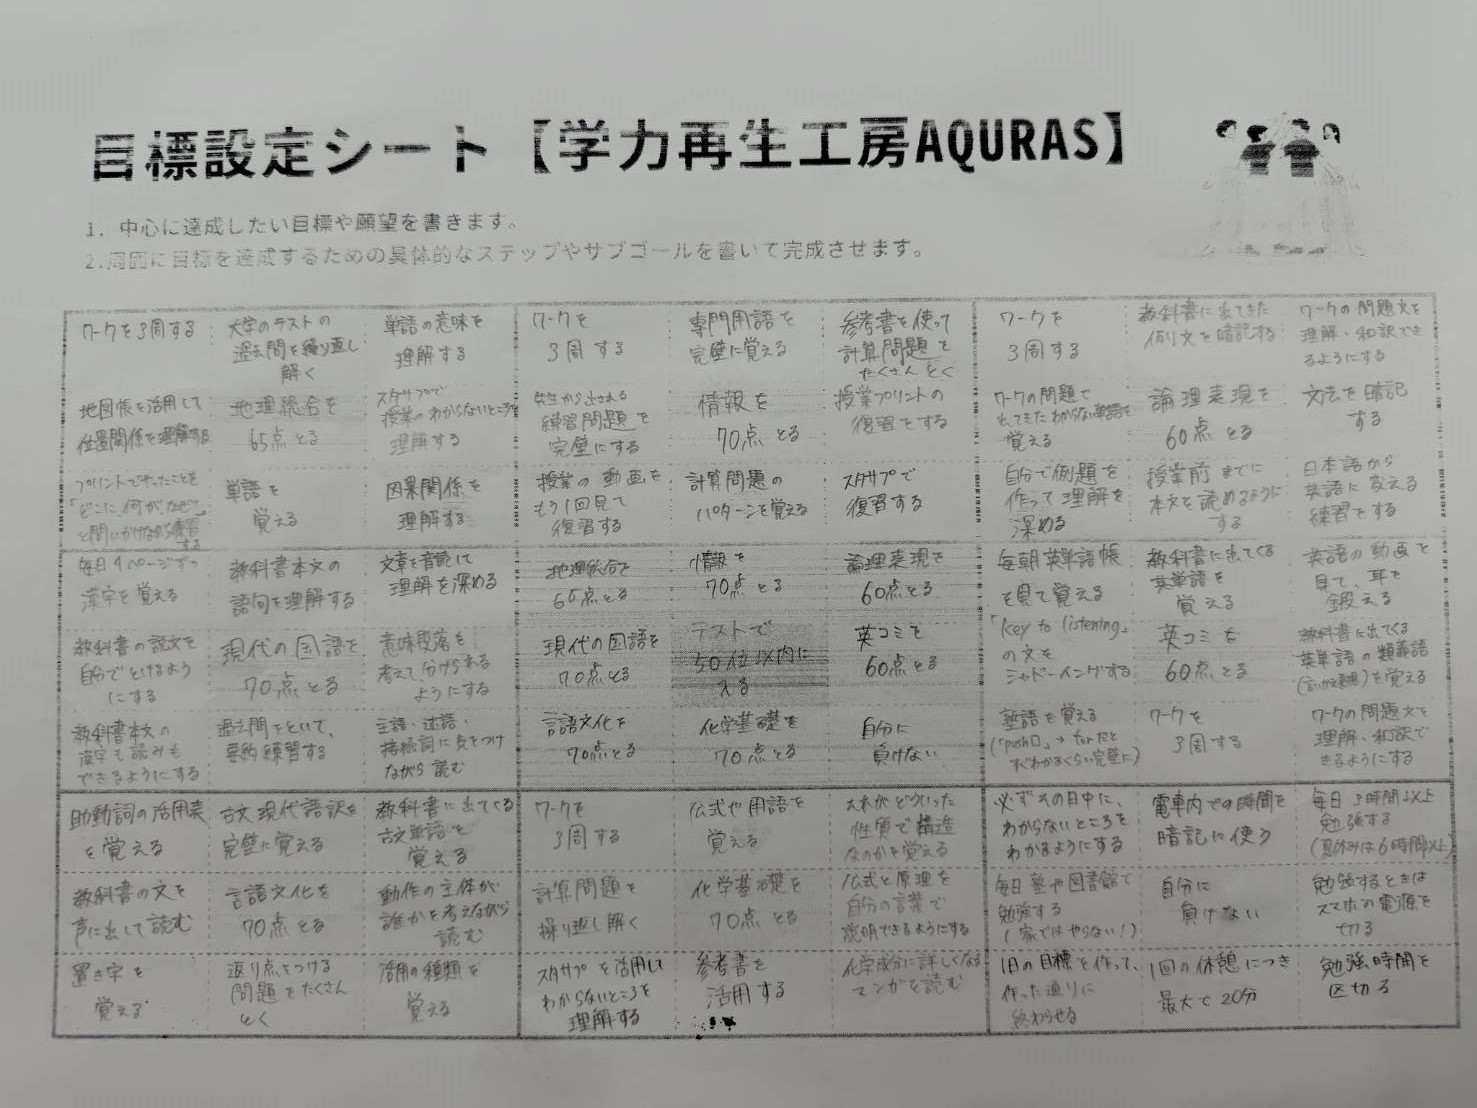 目標設定シート【学力再生工房AQURAS】
1. 中心に達成したい目標や願望を書きます。
2.周囲に目標を達成するための具体的なステップやサブゴールを書いて完成させます。
ワークを3周する
大学のテストの
過去問を繰り返し
解く
単語の意味を
理解する
ワークを
3周する
専門用語を
完璧に覚える
参考書を使って
計算問題を
たくさんとく
ワークを
3周する
教科書に出てきた
例文を暗記する
ワークの問題文を
理解・和訳でき
るようにする
地図帳を活用して
位置関係を理解する
地理総合を
65点とる
スタサプで
授業のわからないところを
理解する
先生から出される
練習問題を
完璧にする
情報を
70点とる
授業プリントの
復習をする
ワークの問題で
出てきたわからない単語を
覚える
論理表現を
60点とる
文法を暗記
する
プリントでやったことを
「どこに、何が、なぜ」
と問いかけながら復習
する
単語を
覚える
因果関係を
理解する
授業の動画を
もう1回見て
復習する
計算問題の
パターンを覚える
スタサプで
復習する
自分で例題を
作って理解を
深める
授業前までに
本文を読めるように
する
日本語から
英語に変える
練習をする
毎日1ページずつ
漢字を覚える
教科書本文の
語句を理解する
文章を音読して
理解を深める
地理総合を
65点とる
情報を
70点とる
論理表現を
60点とる
毎朝英単語帳
を見て覚える
教科書に出てくる
英単語を
覚える
英語の動画を
見て、耳を
鍛える
教科書の説文を
自分でとけるよう
にする
現代の国語を
70点とる
意味段落を
考えて分けられる
ようにする
現代の国語を
70点とる
テストで
50位以内に
入る
英コミを
60点とる
「Key to listening」
の文を
シャドーイングする
英コミを
60点とる
教科書に出てくる
英単語の類義語
(言いかえ表現)を覚える
教科書本文の
漢字で読みも
できるようにする
過去問をといて、
要約練習する
主語・述語・
接続詞に気をつけ
ながら読む
言語文化を
70点とる
化学基礎を
70点とる
自分に
負けない
熟語を覚える
(「push口」→forだと
すぐわかるくらい完璧に)
ワークを
3周する
ワークの問題文を
理解・和訳で
きるようにする
助動詞の活用表
を覚える
古文現代語訳を
完璧に覚える
教科書に出てくる
古文単語を
覚える
ワークを
3周する
公式や用語を
覚える
それがどういった
性質で構造
なのかを覚える
必ずその日中に、
わからないところを
わかるようにする
電車内での時間を
暗記に使う
毎日3時間以上
勉強する
(夏休みは6時間以上)
教科書の文を
声に出して読む
言語文化を
70点とる
動作の主体が
誰かを考えながら
読む
計算問題を
繰り返し解く
化学基礎を
70点とる
公式と原理を
自分の言葉で
説明できるようにする
毎日塾や図書館で
勉強する
(家ではやらない!)
自分に
負けない
勉強するときは
スマホの電源を
切る
置き字を
覚える
返り点をつける
問題をたくさん
とく
活用の種類を
覚える
スタサプを活用し
わからないところを
理解する
参考書を
活用する
化学成分に詳しくなる
マンガを読む
1日の目標を作って、
作った通りに
終わらせる
1回の休憩につき
最大で20分
勉強時間を
区切る